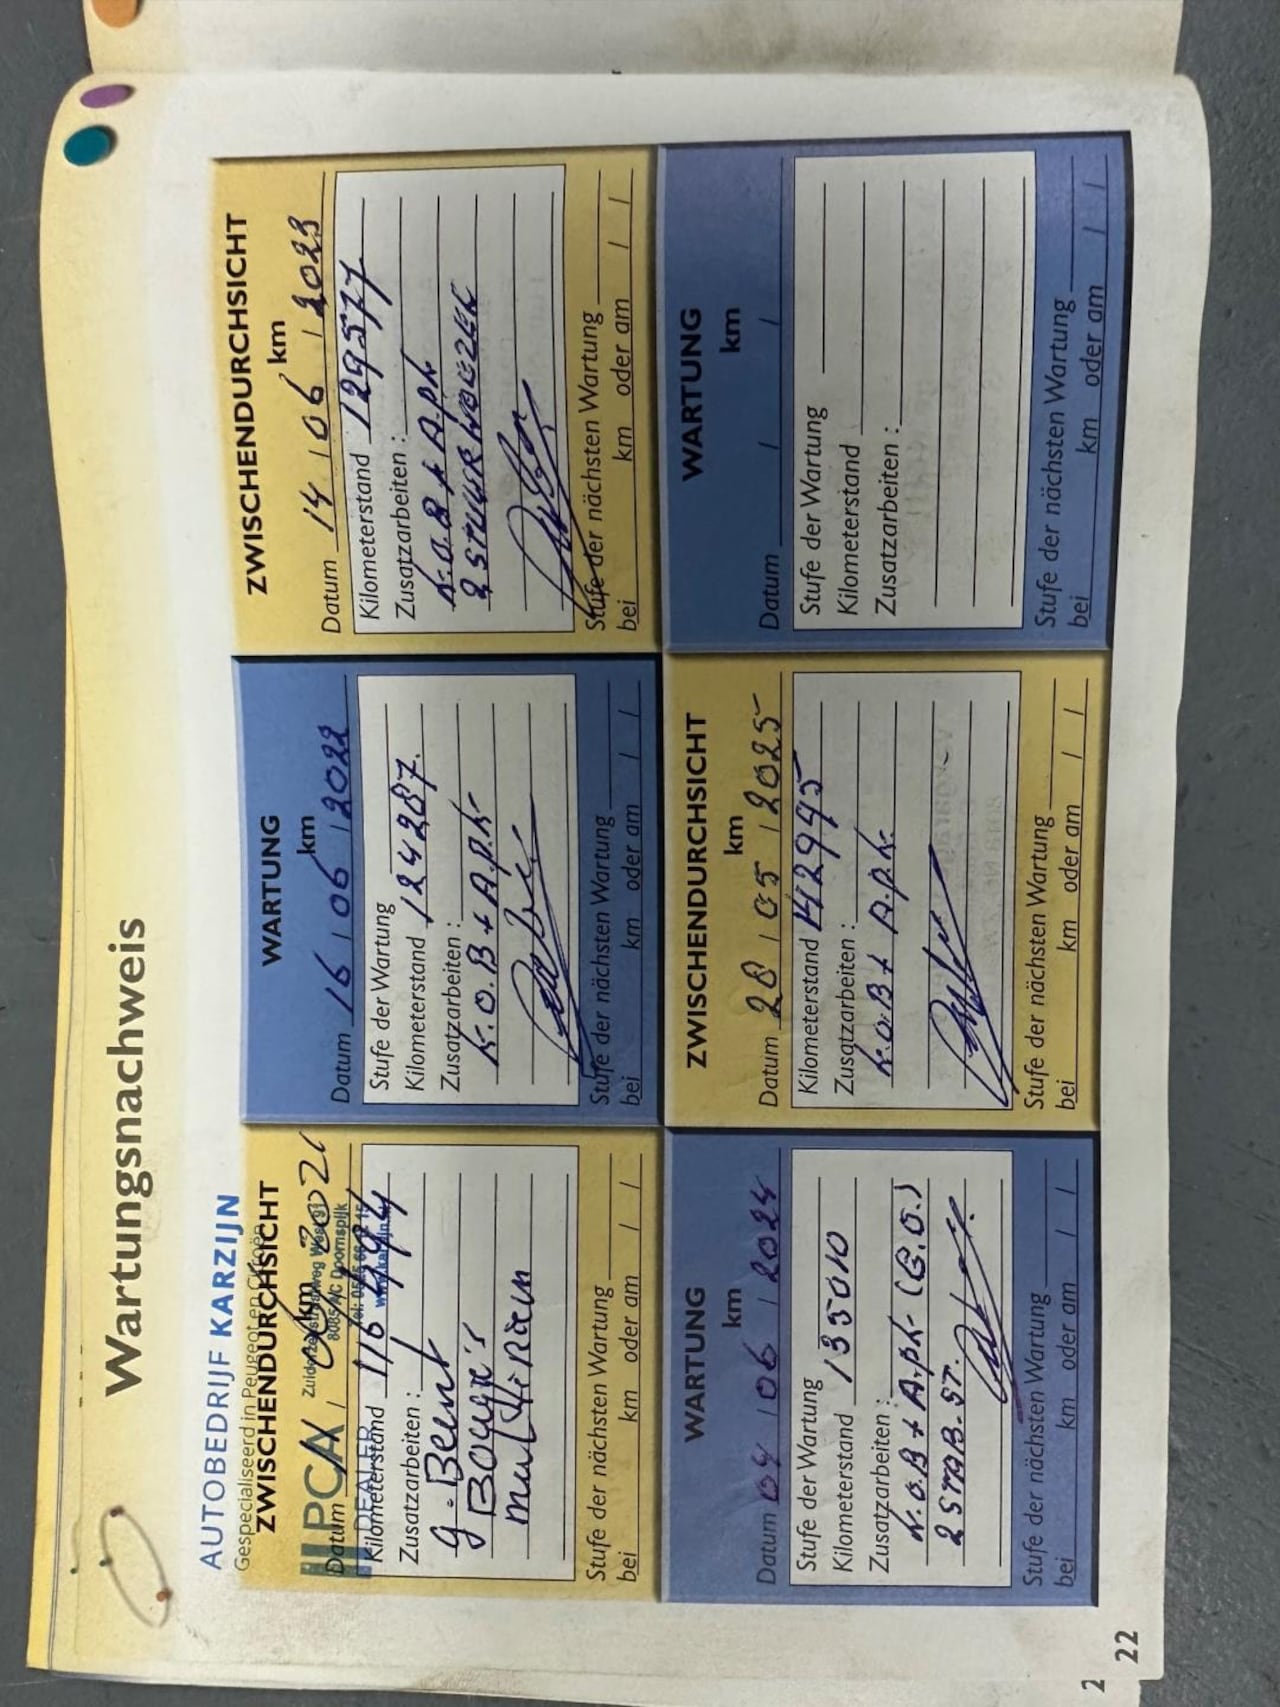 Wartungsnachweis
AUTOBEDRIJF KARZIJN
Gespecialiseerd in Peugeot en Citroën
ZWISCHENDURCHSICHT
km
Datum
PCA
DEALER
Zuiderzeestraatweg West 91
8085 AC Doornspijk
06 2021
Kilometerstand 116494
Zusatzarbeiten:
g. Beurt
Bougie's
multiriem
Stufe der nächsten Wartung
bei km oder am / /
WARTUNG
km
Datum 16 / 06 / 2022
Stufe der Wartung
Kilometerstand 124287.
Zusatzarbeiten:
K.O.B + A.p.k.
Stufe der nächsten Wartung
bei km oder am / /
ZWISCHENDURCHSICHT
km
Datum 14 / 06 / 2023
Kilometerstand 129577
Zusatzarbeiten:
K.O.B + A.p.k.
2 STUUR
Stufe der nächsten Wartung
bei km oder am / /
WARTUNG
km
Datum 04 / 06 / 2024
Stufe der Wartung
Kilometerstand 135010
Zusatzarbeiten:
K.O.B + A.p.k. (G.O.)
2 STAB.ST.
Stufe der nächsten Wartung
bei km oder am / /
ZWISCHENDURCHSICHT
km
Datum 28 / 05 / 2025
Kilometerstand 142995
Zusatzarbeiten:
K.O.B + A.p.k.
Stufe der nächsten Wartung
bei km oder am / /
WARTUNG
km
Datum / /
Stufe der Wartung
Kilometerstand
Zusatzarbeiten:
Stufe der nächsten Wartung
bei km oder am / /
22
2